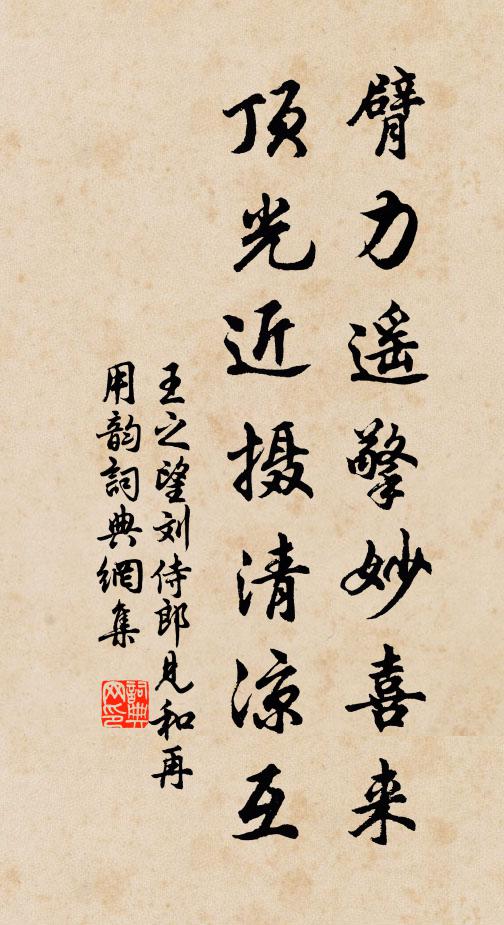 臂力遥擎妙喜来
顶光近摄清凉互
王之望刘侍郎见和再
用韵詞典網集
詞典网印